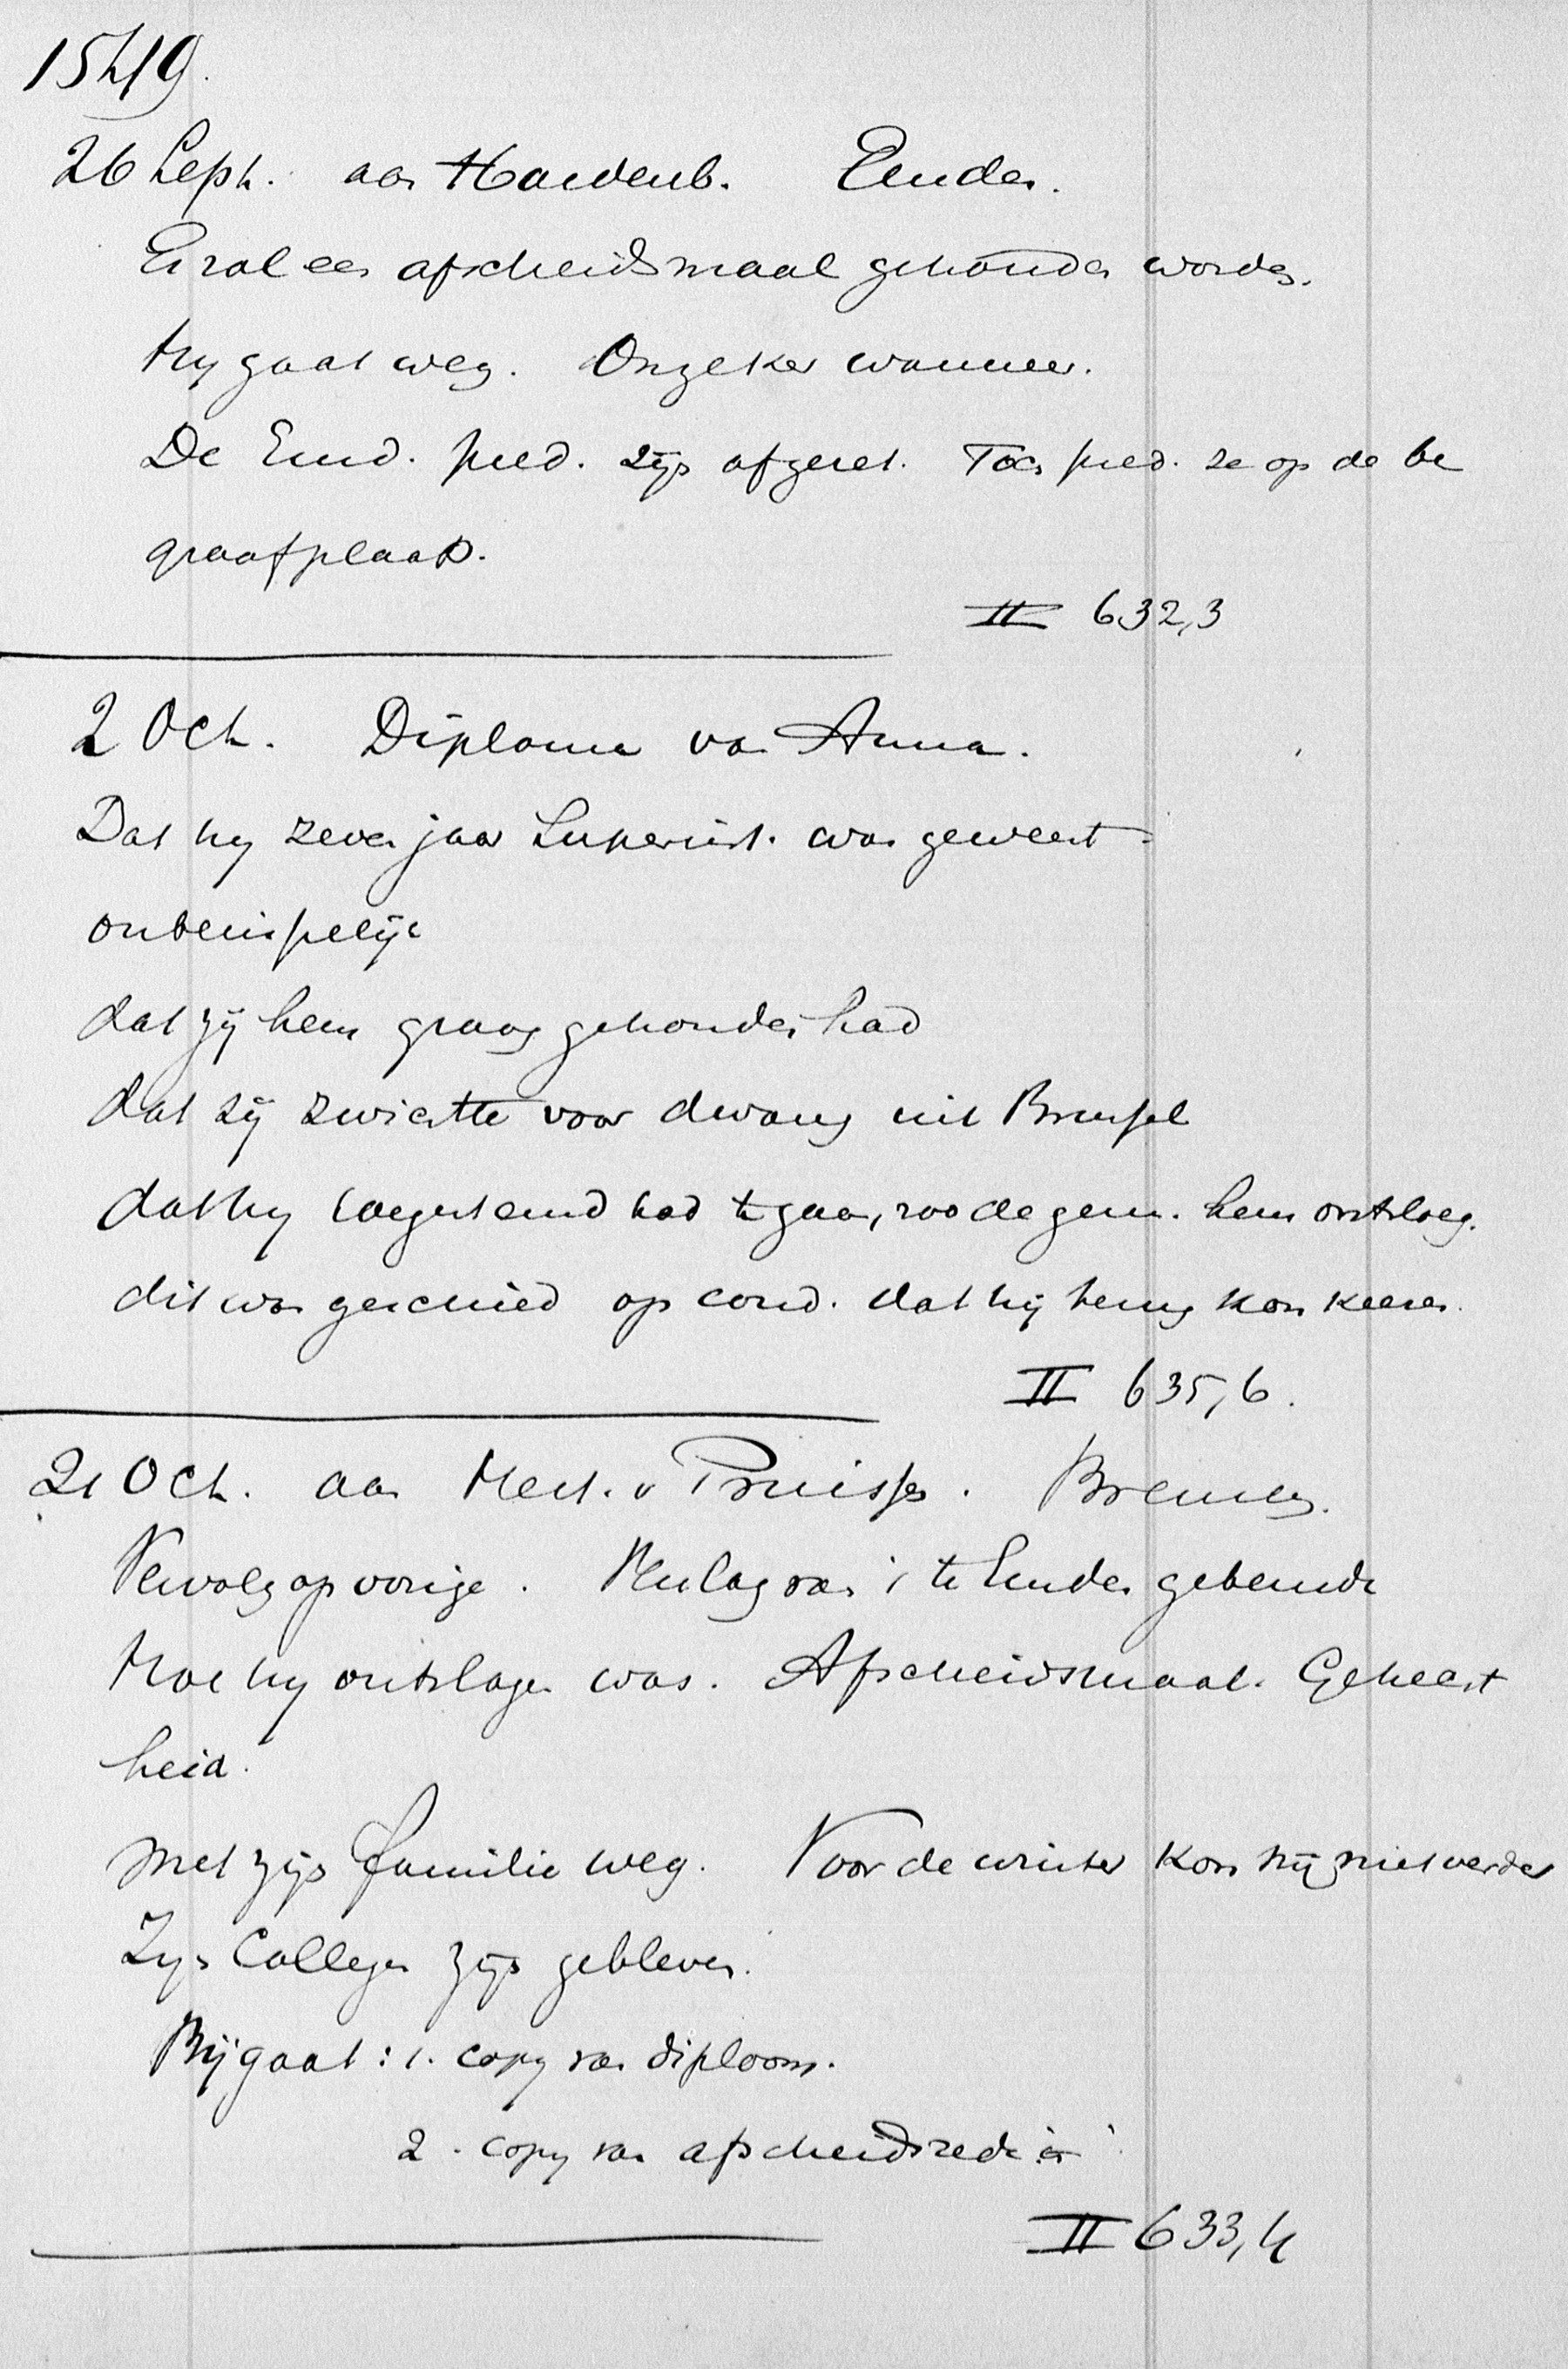 1549.
26 Sept. aan Hardenb. Emden.
Er zal een afscheidsmaal gehouden worden.
Hy gaat weg. Onzeker wanneer.
De Emd. pred. zijn afgezet. Toch pred. ze op de be
graafplaats.
II 632,3
2 Oct. Diploma van Anna.
Dat hy zeven jaar Superint. was geweest
onberispelijk
dat zij hem graag gehouden had
dat zij zwichtte voor dwang uit Brussel
dat hy toegestemd had te gaan, zoo de gem. hem ontsloeg.
dit was geschied op cond. dat hij terug kon keeren.
II 635,6.
21 Oct. aan Hert. v Pruissen. Bremen.
Vervolg op vorige. Verslag van 't te Emden gebeurde
Hoe hy ontslagen was. Afscheidsmaal. Gehecht
heid.
Met zijn familie weg. Voor de winter kon hij niet verder
Zijn Collegen zijn gebleven.
Bijgaat: 1. copy van diploom.
2. copy van afscheidsrede
II 633,4